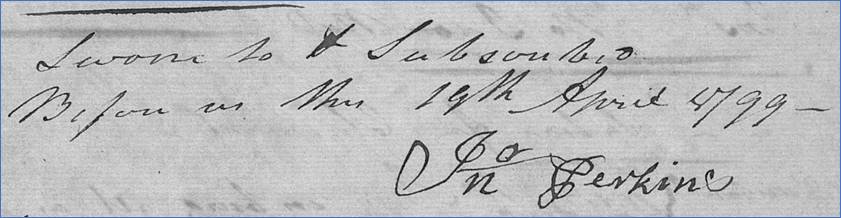 Sworn to & Subscribed
Before us this 19th April 1799 —
Jno Perkins